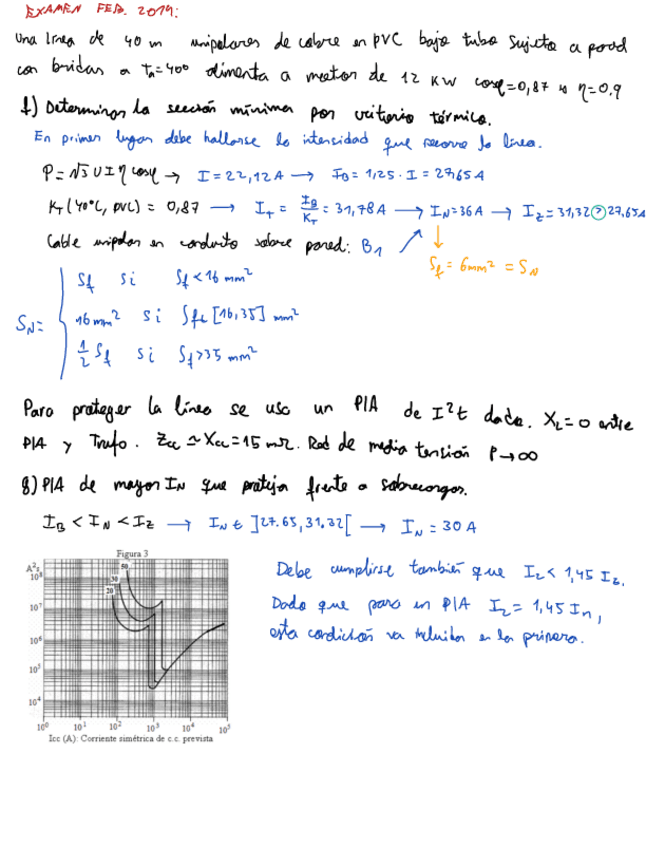 EXAMEN FEB. 2019:
Una línea de 40 m unipolares de cobre en PVC bajo tubo sujeta a pared
con bridas a Ta=40º alimenta a motor de 12 KW cosφ=0,87 η=0.9
f) Determinar la sección mínima por criterio térmico.
En primer lugar debe hallarse la intensidad que recorre la línea.
P=√3 U I η cosφ → I=22,12A → I_B=1,25·I=27,65A
K_T(40ºC, PVC) = 0,87 → I_T = I_B/K_T = 31,78A → I_N=36A → I_Z=31,32>27,65A
Cable unipolar en conducto sobre pared: B1
S_f=6mm²=S_N
S_N=
S_f si S_f<16 mm²
16mm² si S_f∈[16,35] mm²
1/2 S_f si S_f>35 mm²
Para proteger la línea se usa un PIA de I²t dada. X_L=0 entre
PIA y Trafo. Z_cc≃X_cc=15mΩ. Red de media tensión P→∞
g) PIA de mayor I_N que proteja frente a sobrecargas.
I_B < I_N < I_Z → I_N ∈ ]27.65, 31.32[ → I_N = 30 A
Figura 3
A²s
10⁸
10⁷
10⁶
10⁵
10⁴
50
30
20
10⁰ 10¹ 10² 10³ 10⁴ 10⁵
Icc (A): Corriente simétrica de c.c. prevista
Debe cumplirse también que I_2<1,45 I_Z.
Dado que para un PIA I_2=1,45 I_n,
esta condición va incluida en la primera.